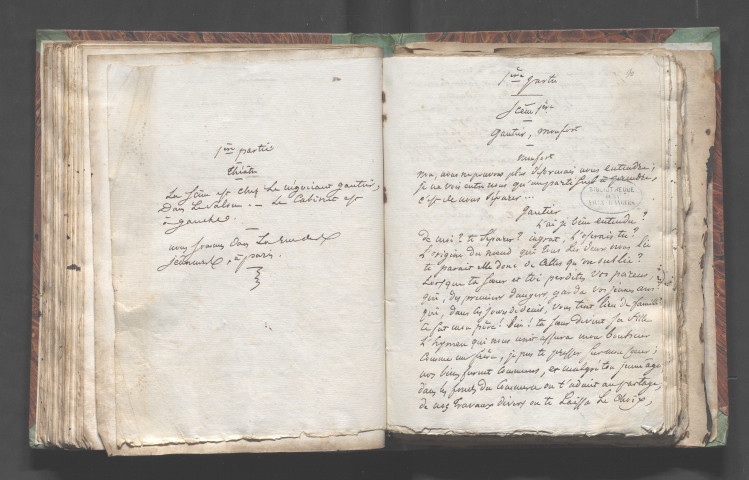 1ère partie
Théâtre
La scène est chez Le négociant gautier,
Dans Le salon. — Le Cabinet est
à gauche.
nous sommes Dans La rue des
jeûneurs, à paris.
1ère partie
Scène 1ère
gautier, monfort
monfort
non, nous ne pouvons plus désormais nous entendre;
je ne vois entre nous qu'un parti seul à prendre,
c'est de nous séparer...
BIBLIOTHÈQUE
DE LA
VILLE D'ANGERS
gautier
L'ai je bien entendu?
De moi? te séparer? ingrat, L'oserais tu?
L'origine du nœud qui tous Les deux nous Lie
te parait elle donc de Celles qu'on oublie?
Lorsque ta sœur et toi perdites vos parens,
qui, des premiers dangers garda vos jeunes ans?
qui, dans Ces jours de deuil, vous tint Lieu de famille?
ce fut mon père! Oui! ta sœur devint sa fille
L'hymen qui nous unit assura mon bonheur
Comme un frère, je pus te presser sur mon Cœur;
nos biens furent communs, et malgré ton jeune age
dans les fonds du Commerce on t'admit au partage,
de nos travaux divers on te Laissa Le Choix,